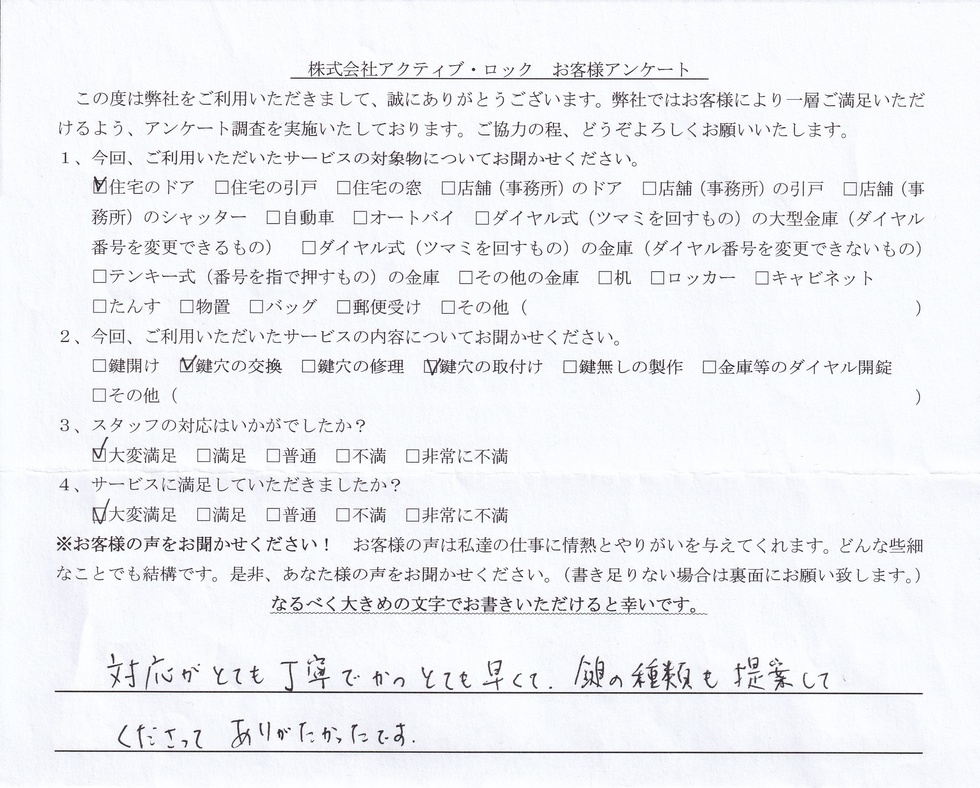 株式会社アクティブ・ロック　お客様アンケート
この度は弊社をご利用いただきまして、誠にありがとうございます。弊社ではお客様により一層ご満足いただ
けるよう、アンケート調査を実施いたしております。ご協力の程、どうぞよろしくお願いいたします。
１、今回、ご利用いただいたサービスの対象物についてお聞かせください。
☑住宅のドア　□住宅の引戸　□住宅の窓　□店舗（事務所）のドア　□店舗（事務所）の引戸　□店舗（事
務所）のシャッター　□自動車　□オートバイ　□ダイヤル式（ツマミを回すもの）の大型金庫（ダイヤル
番号を変更できるもの）　□ダイヤル式（ツマミを回すもの）の金庫（ダイヤル番号を変更できないもの）
□テンキー式（番号を指で押すもの）の金庫　□その他の金庫　□机　□ロッカー　□キャビネット
□たんす　□物置　□バッグ　□郵便受け　□その他（　　　　　　　　　　　　　　　　　　　　　　）
２、今回、ご利用いただいたサービスの内容についてお聞かせください。
□鍵開け　☑鍵穴の交換　□鍵穴の修理　☑鍵穴の取付け　□鍵無しの製作　□金庫等のダイヤル開錠
□その他（　　　　　　　　　　　　　　　　　　　　　　　　　　　　　　　　　　　　　　　　　　）
３、スタッフの対応はいかがでしたか？
☑大変満足　□満足　□普通　□不満　□非常に不満
４、サービスに満足していただきましたか？
☑大変満足　□満足　□普通　□不満　□非常に不満
※お客様の声をお聞かせください！　お客様の声は私達の仕事に情熱とやりがいを与えてくれます。どんな些細
なことでも結構です。是非、あなた様の声をお聞かせください。（書き足りない場合は裏面にお願い致します。）
なるべく大きめの文字でお書きいただけると幸いです。
対応がとても丁寧でかつとても早くて、鍵の種類も提案して
くださって ありがたかったです.